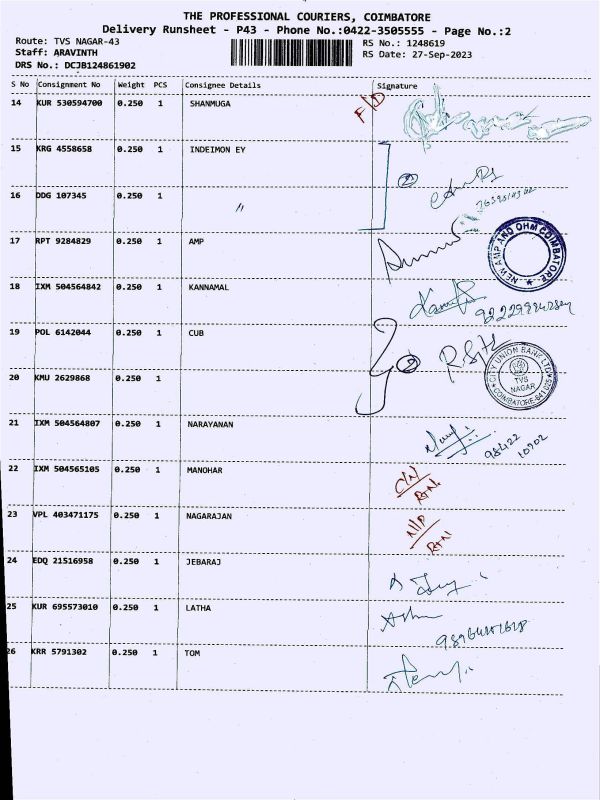 THE PROFESSIONAL COURIERS, COIMBATORE
Delivery Runsheet - P43 - Phone No.:0422-3505555 - Page No.:2
Route: TVS NAGAR-43 RS No.: 1248619
Staff: ARAVINTH RS Date: 27-Sep-2023
DRS No.: DCJB124861902
S No Consignment No Weight PCS Consignee Details Signature
14 KUR 530594700 0.250 1 SHANMUGA F/D
15 KRG 4558658 0.250 1 INDEIMON EY
2
16 DDG 107345 0.250 1 "
17 RPT 9284829 0.250 1 AMP
NEW AMP AND OHM COIMBATORE
18 IXM 504564842 0.250 1 KANNAMAL
19 POL 6142044 0.250 1 CUB
2
CITY UNION BANK LTD
TVS
NAGAR
COIMBATORE-641 025
20 KMU 2629868 0.250 1
21 IXM 504564807 0.250 1 NARAYANAN
98422
10902
22 IXM 504565105 0.250 1 MANOHAR
RTN
23 VPL 403471175 0.250 1 NAGARAJAN
RTN
24 EDQ 21516958 0.250 1 JEBARAJ
25 KUR 695573010 0.250 1 LATHA
26 KRR 5791302 0.250 1 TOM